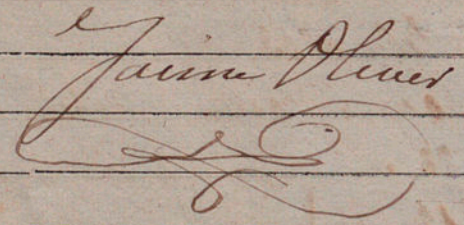 Jaime Oliver